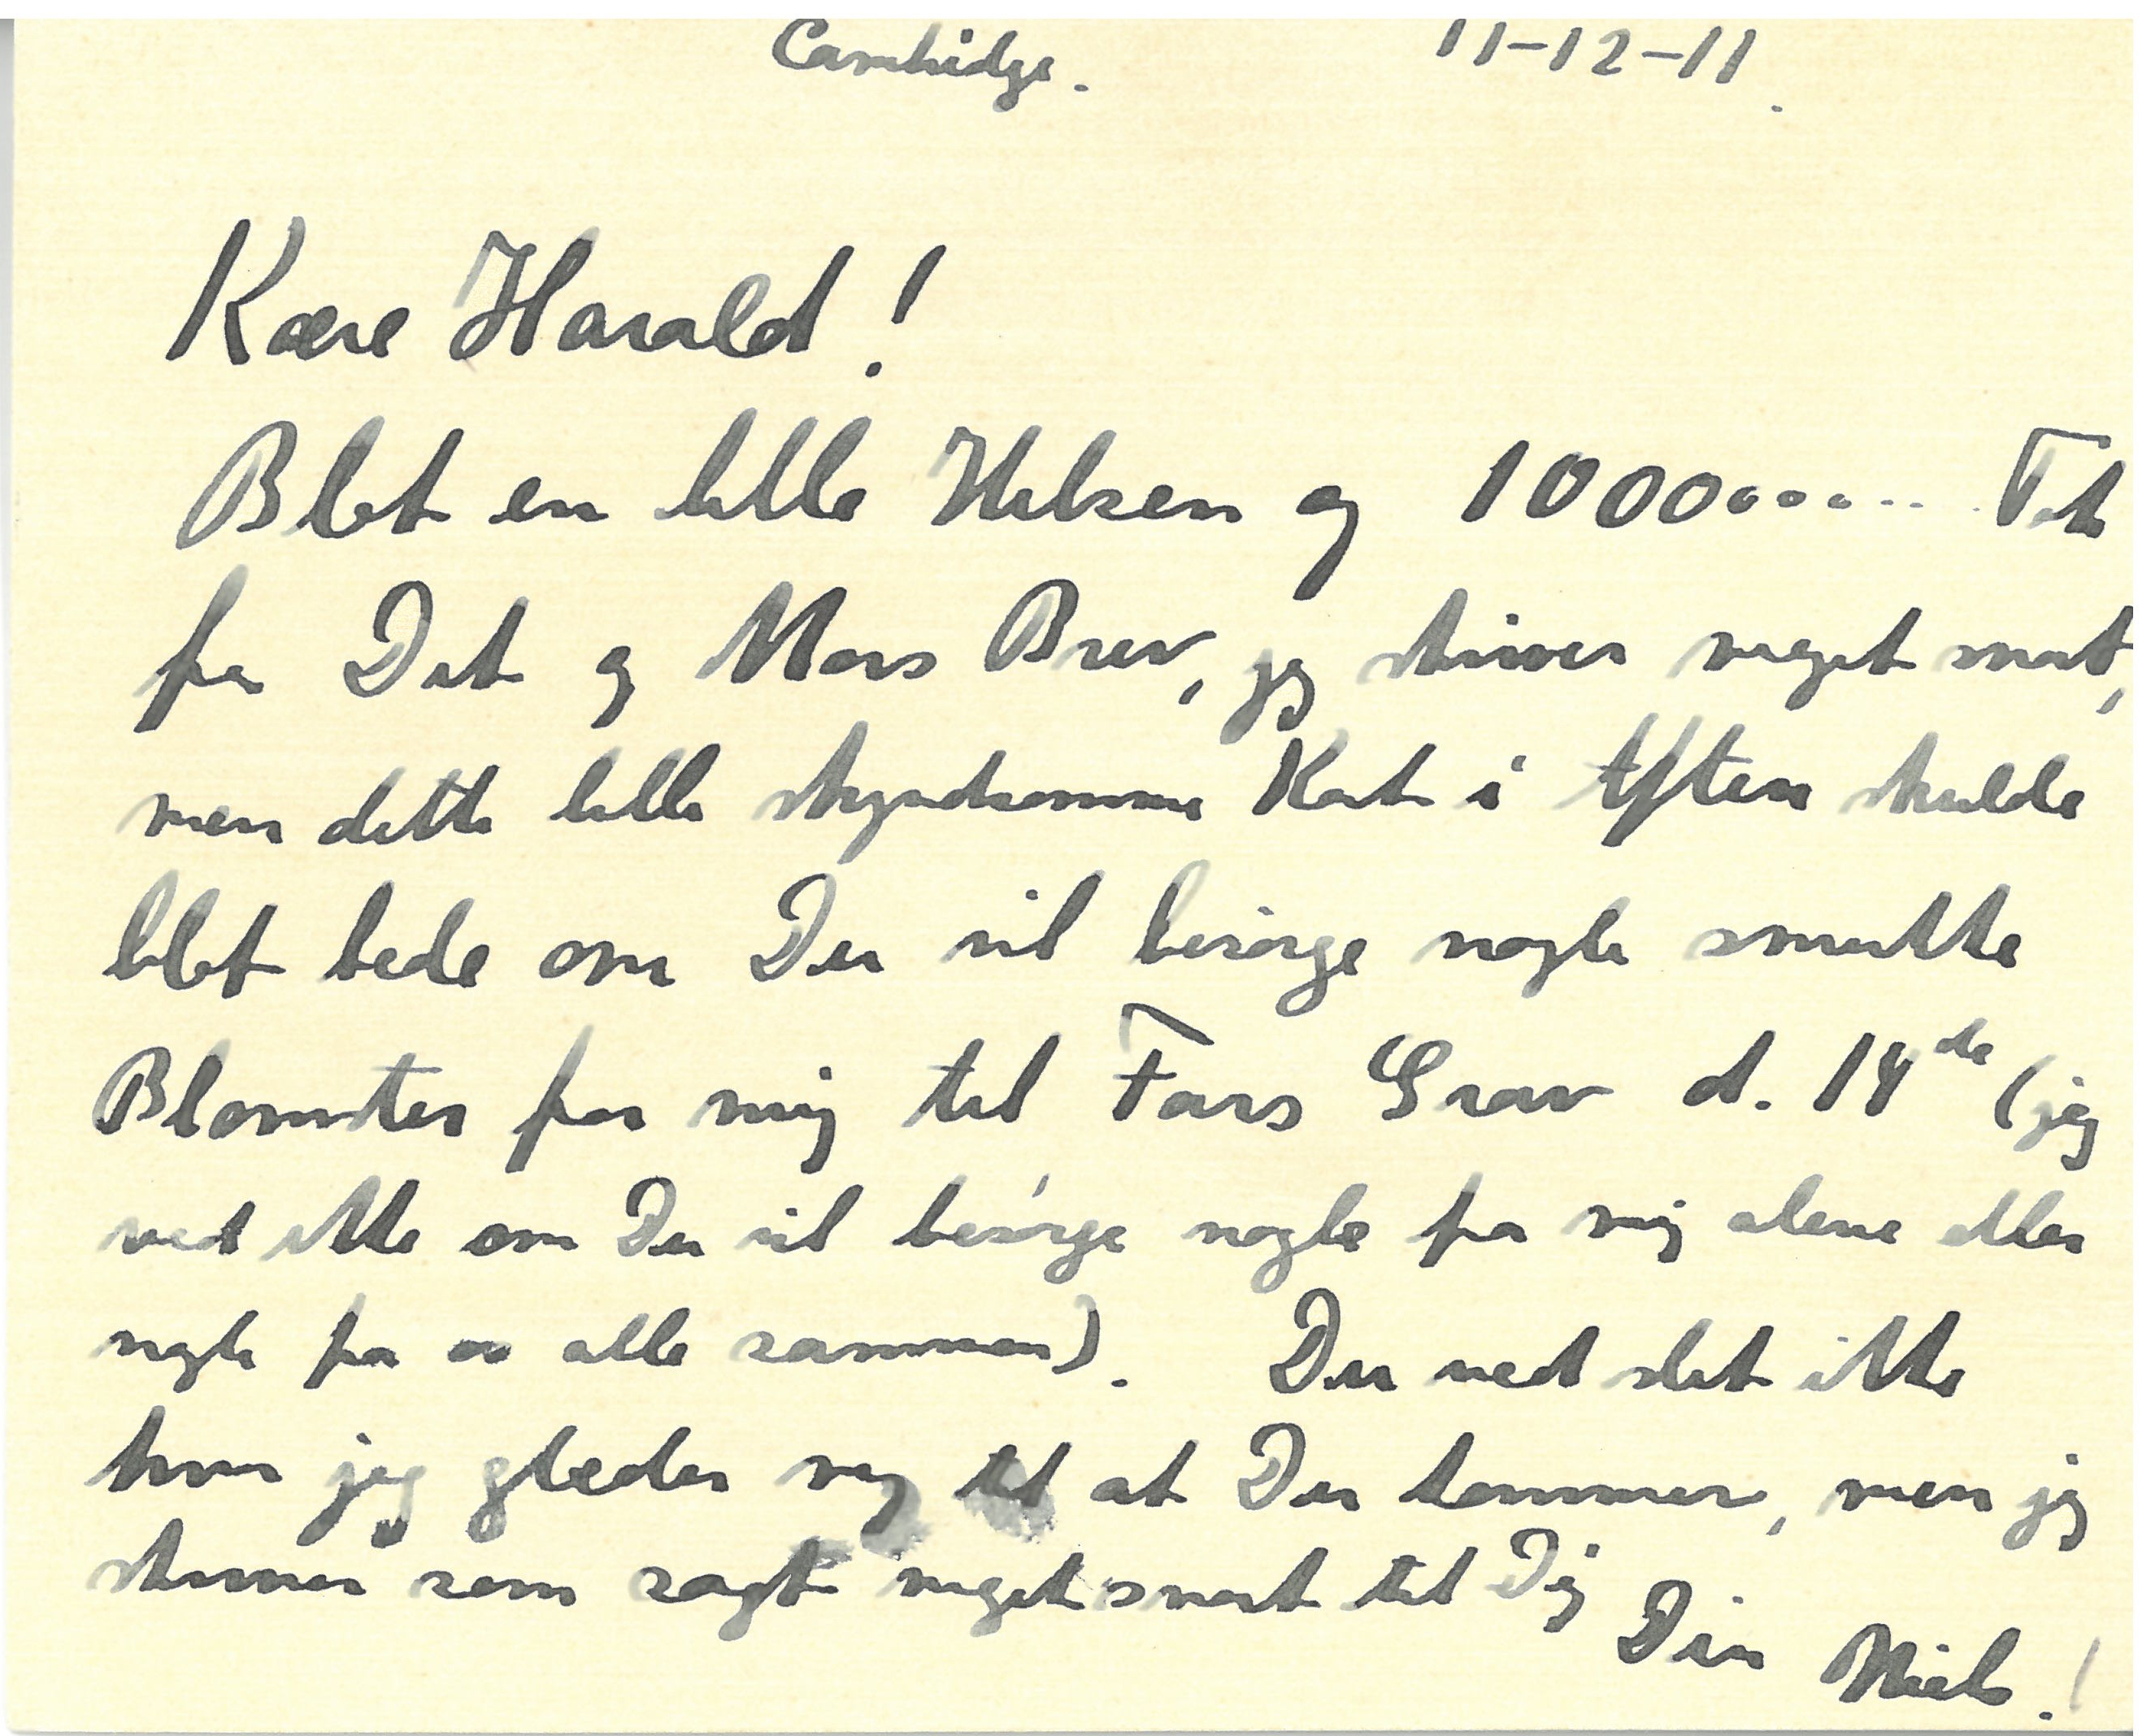 Cambridge. 11-12-11.
Kære Harald!
Blot en lille Hilsen og 1000000..... Tak
for Dit og Mors Brev, jeg skriver meget snart,
men dette lille skyndsomme Kort i Aften skulde
blot bede om Du vil besørge nogle smukke
Blomster for mig til Fars Grav d. 14de (jeg
ved ikke om Du vil besørge nogle fra mig alene eller
nogle fra os alle sammen). Du ved slet ikke
hvor jeg glæder mig til at Du kommer, men jeg
skriver som sagt meget snart til Dig
Din Niels!